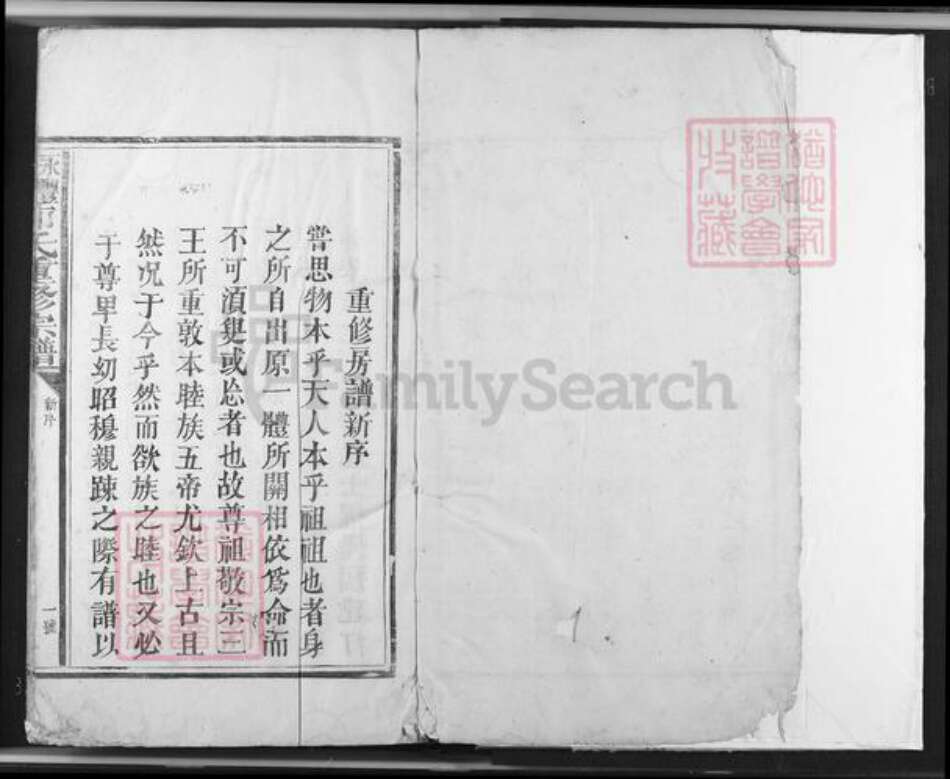 重修房譜新序
嘗思物本乎天人本乎祖祖也者身
之所自出原一體所關相依爲命而
不可湏㬰或忘者也故尊祖敬宗三
王所重敦本睦族五帝尤欽上古且
然况于今乎然而欲族之睦也又必
于尊卑長幼昭穆親踈之際有譜以
氏重修宗譜
新序
一號
譜學會
收藏
FamilySearch
1